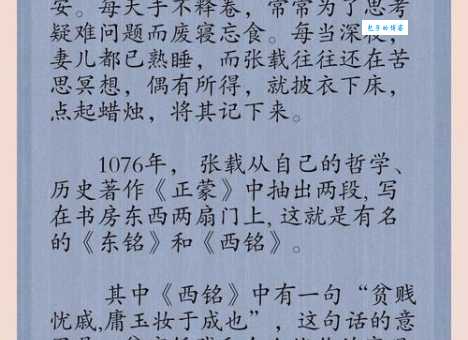 安。每天手不释卷，常常为了思考
疑难问题而废寝忘食。每当深夜，
妻儿都已熟睡，而张载往往还在苦
思冥想，偶有所得，就披衣下床，
点起蜡烛，将其记下来。
1076年，张载从自己的哲学、
历史著作《正蒙》中抽出两段,写
在书房东西两扇门上,这就是有名
的《东铭》和《西铭》。
其中《西铭》中有一句“贫贱
忧戚,庸玉妆于成也”，这句话的意